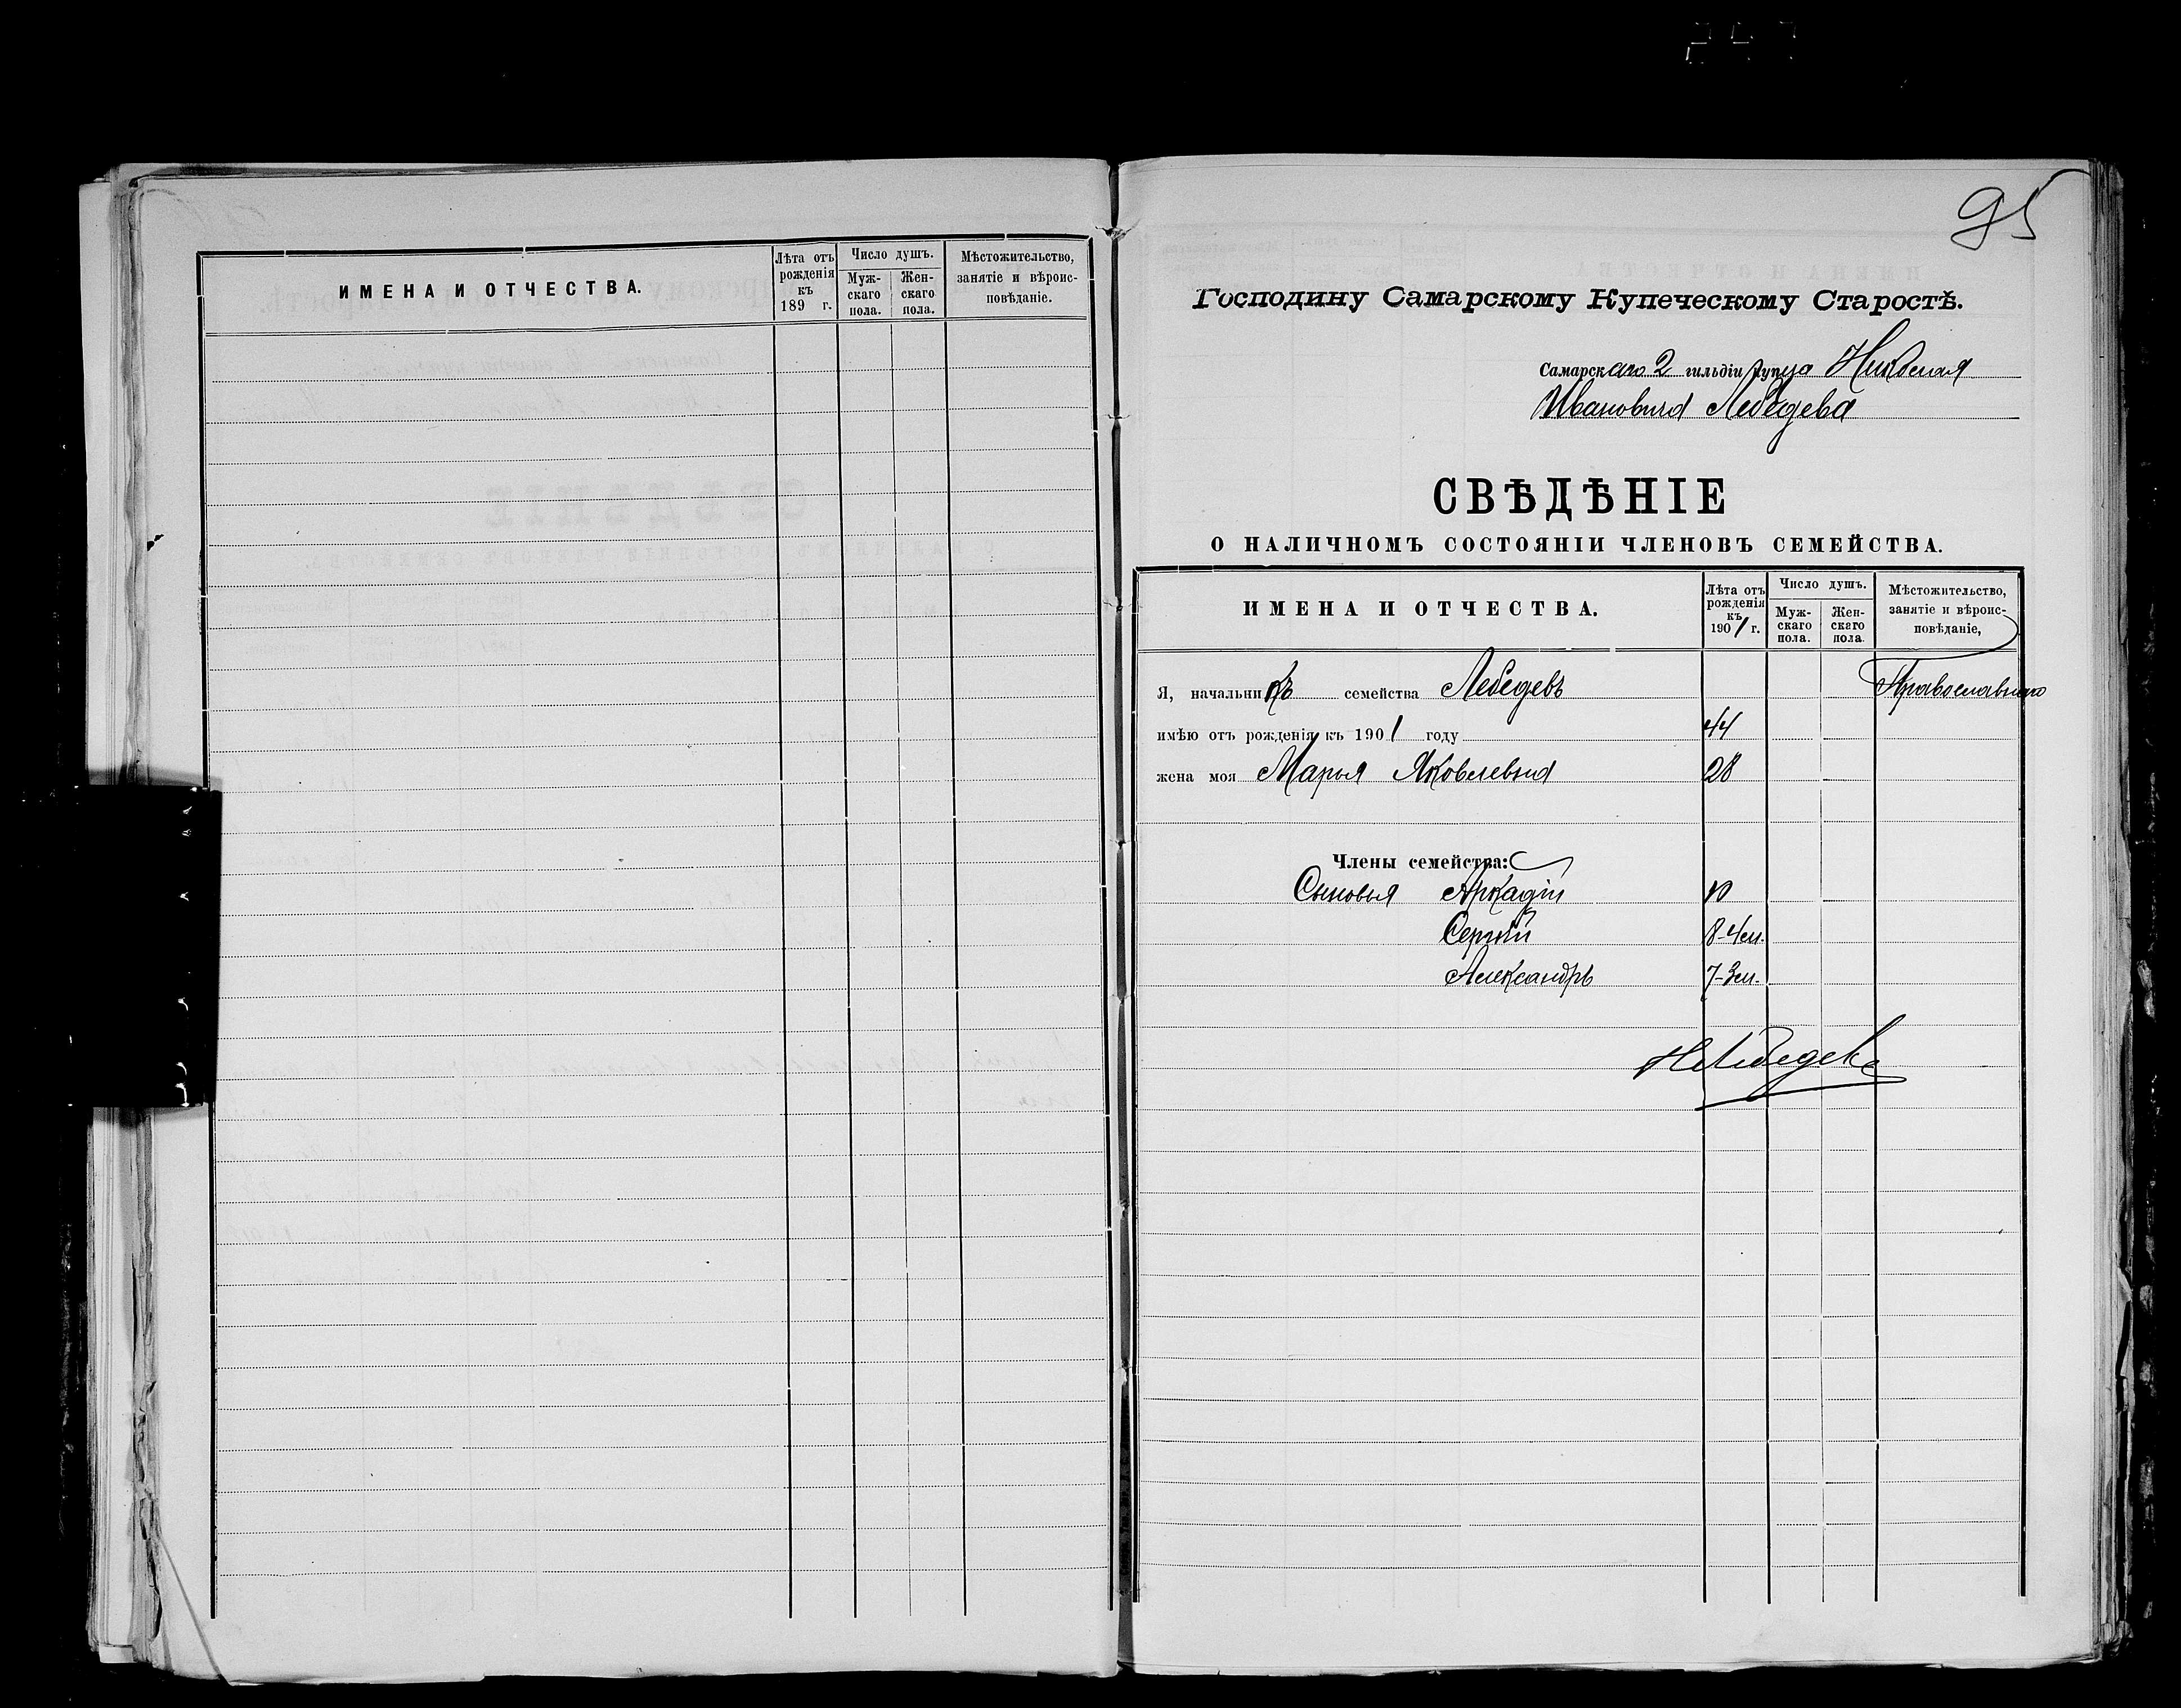 ИМЕНА И ОТЧЕСТВА.
Лѣта отъ рожденія къ 189 г.
Число душъ.
Муж-скаго пола.
Жен-скаго пола.
Мѣстожительство, занятіе и вѣроис-повѣданіе.
95
Господину Самарскому Купеческому Старостѣ.
Самарскаго 2 гильдіи купца Николая
Ивановича Лебедева
СВѢДѢНІЕ
О НАЛИЧНОМЪ СОСТОЯНІИ ЧЛЕНОВЪ СЕМЕЙСТВА.
ИМЕНА И ОТЧЕСТВА.
Лѣта отъ рожденія къ 1901 г.
Число душъ.
Муж-скаго пола.
Жен-скаго пола.
Мѣстожительство, занятіе и вѣроис-повѣданіе,
Я, начальникъ семейства Лебедевъ Православнаго
имѣю отъ рожденія къ 1901 году 44
жена моя Марья Яковлевна 28
Члены семейства:
Сыновья Аркадій 10
Сергѣй 8-4 м.
Александръ 7-3 м.
Н Лебедевъ